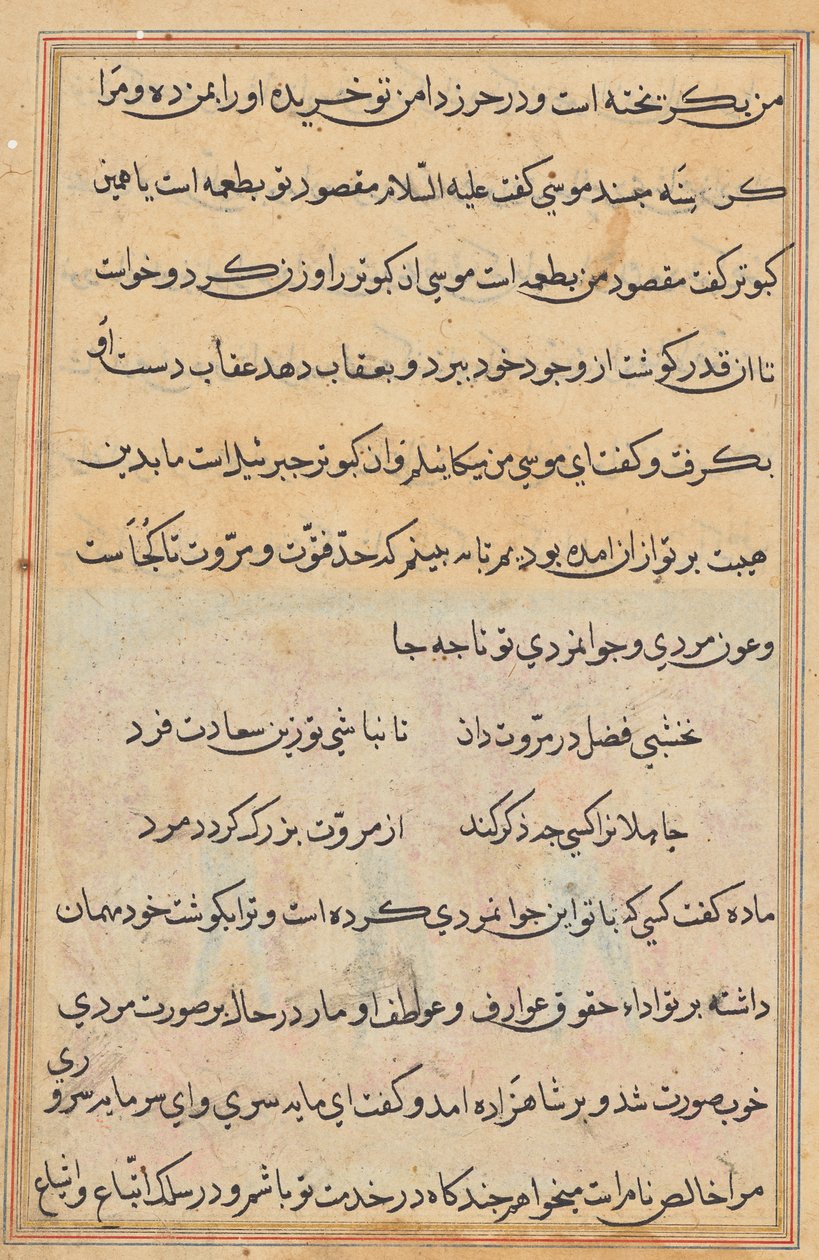 من بکریخته است و در حرز دامن تو خریده اورا بمن ده ومَرا
کرسِنَه مبسند موسي کفت علیه السّلام مقصود تو بطعمه است یا همین
کبوتر کفت مقصود من بطعمه است موسي ان کبوتر را وزن کرد و خواست
تا ان قدر کوشت از وجود خود ببرد و بعقاب دهد عقاب دست اَو
بکرفت و کفت اي موسي من میکاییلم و ان کبوتر جبرئیل است ما بدین
هیبت بر تو از ان امده بودیم تا ببینم که حدّ فتوّت و مرّوت تا کُجاَست
و عون مردي و جوانمردي تو تا جه جا
نخشبي فضل در مرّوت دان تا نباشي تو زین سعادت فرد
جاملانرا کسي جه ذکر کند از مروّت بزرک کردد مرد
ماده کفت کسي که با تو این جوانمردي کرده است و ترا بکوشت خود مهمان
داشته بر تو اداء حقوق عوارف و عواطف او مار در حال بر صورت مردي
خوب صورت شد و بر شاهزَاده امد و کفت اي مایه سري و اي سرمایه سروري
مرا خالص نام است میخواهم جند کاه در خدمت تو باشم و در سلک اتّباع و اشیاع